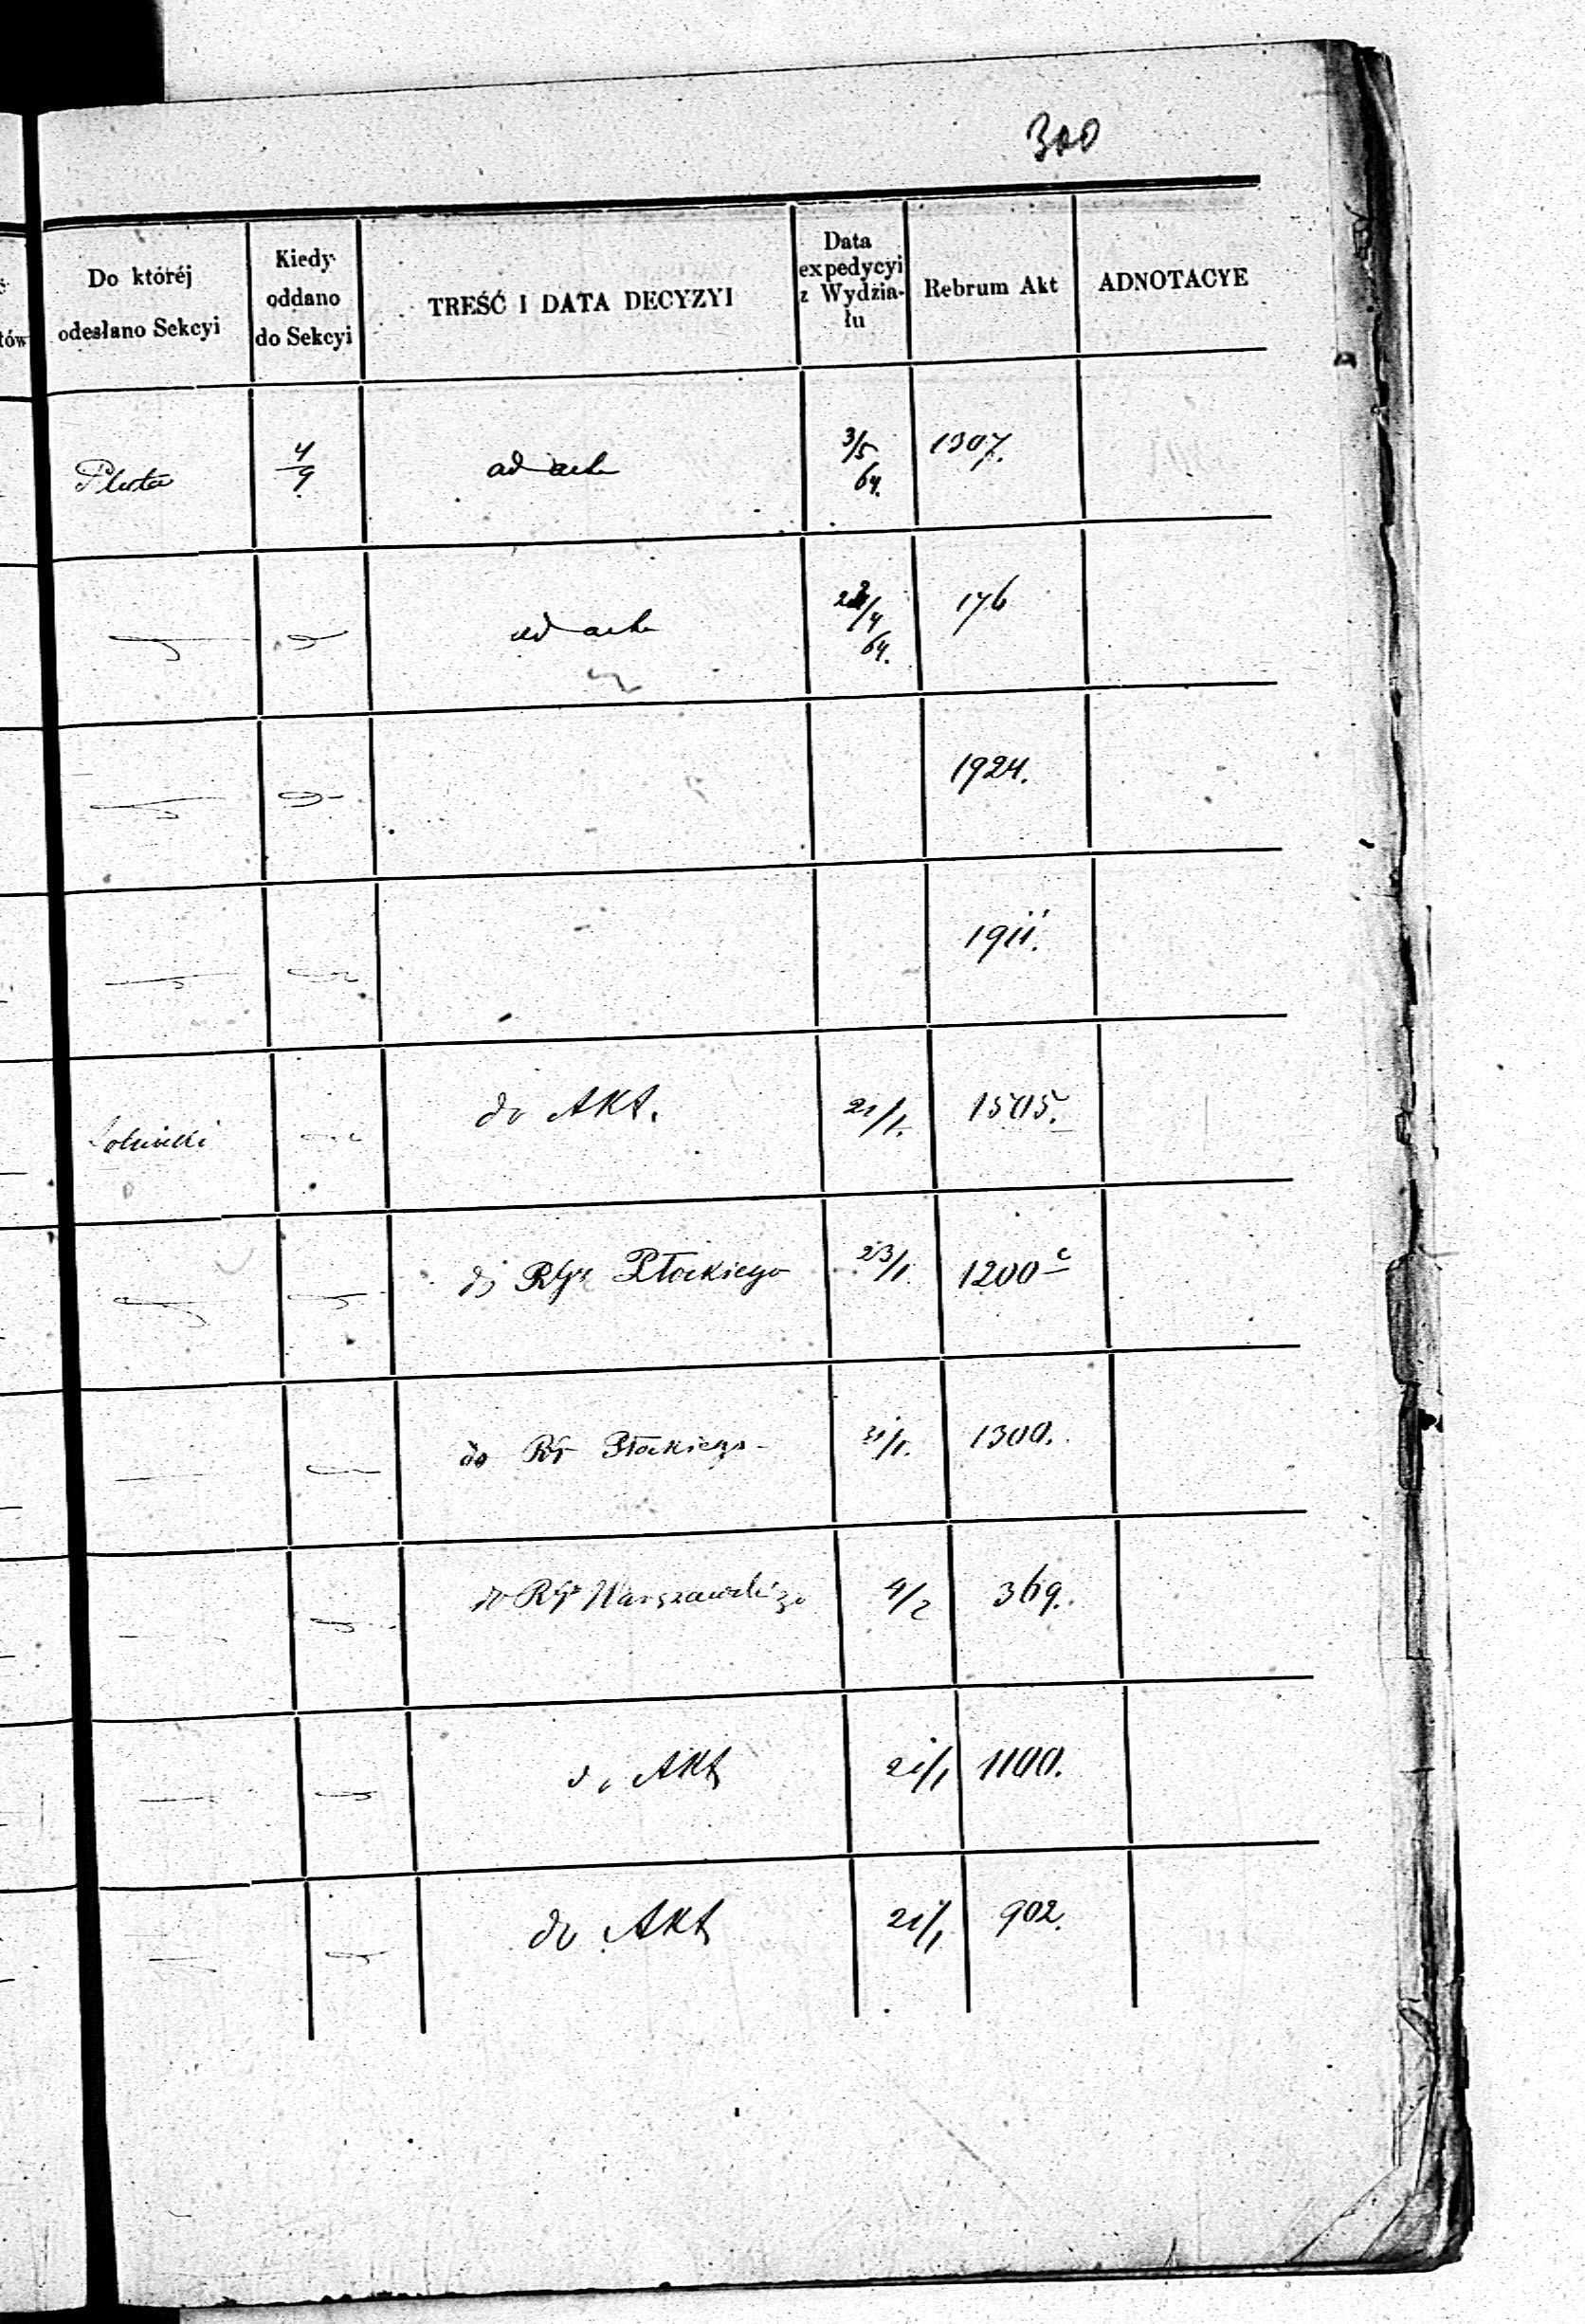 300
Do któréj
odesłano Sekcyi
Kiedy
oddano
do Sekcyi
TREŚĆ I DATA DECYZYI
Data
expedycyi
z Wydzia-
łu
Rebrum Akt
ADNOTACYE
tów
Pluta 4/9 ad acta 3/5 64. 1307.
ad acta /4 64. 176
1924.
1911.
do Akt. 21/1. 1505.
do RGr Płockiego 23/1. 1200 c
do RG Płockiego 31/1. 1300.
do RGr Warszawskiego 4/2 369.
do Akt 21/1 1100.
do Akt 21/1 902.